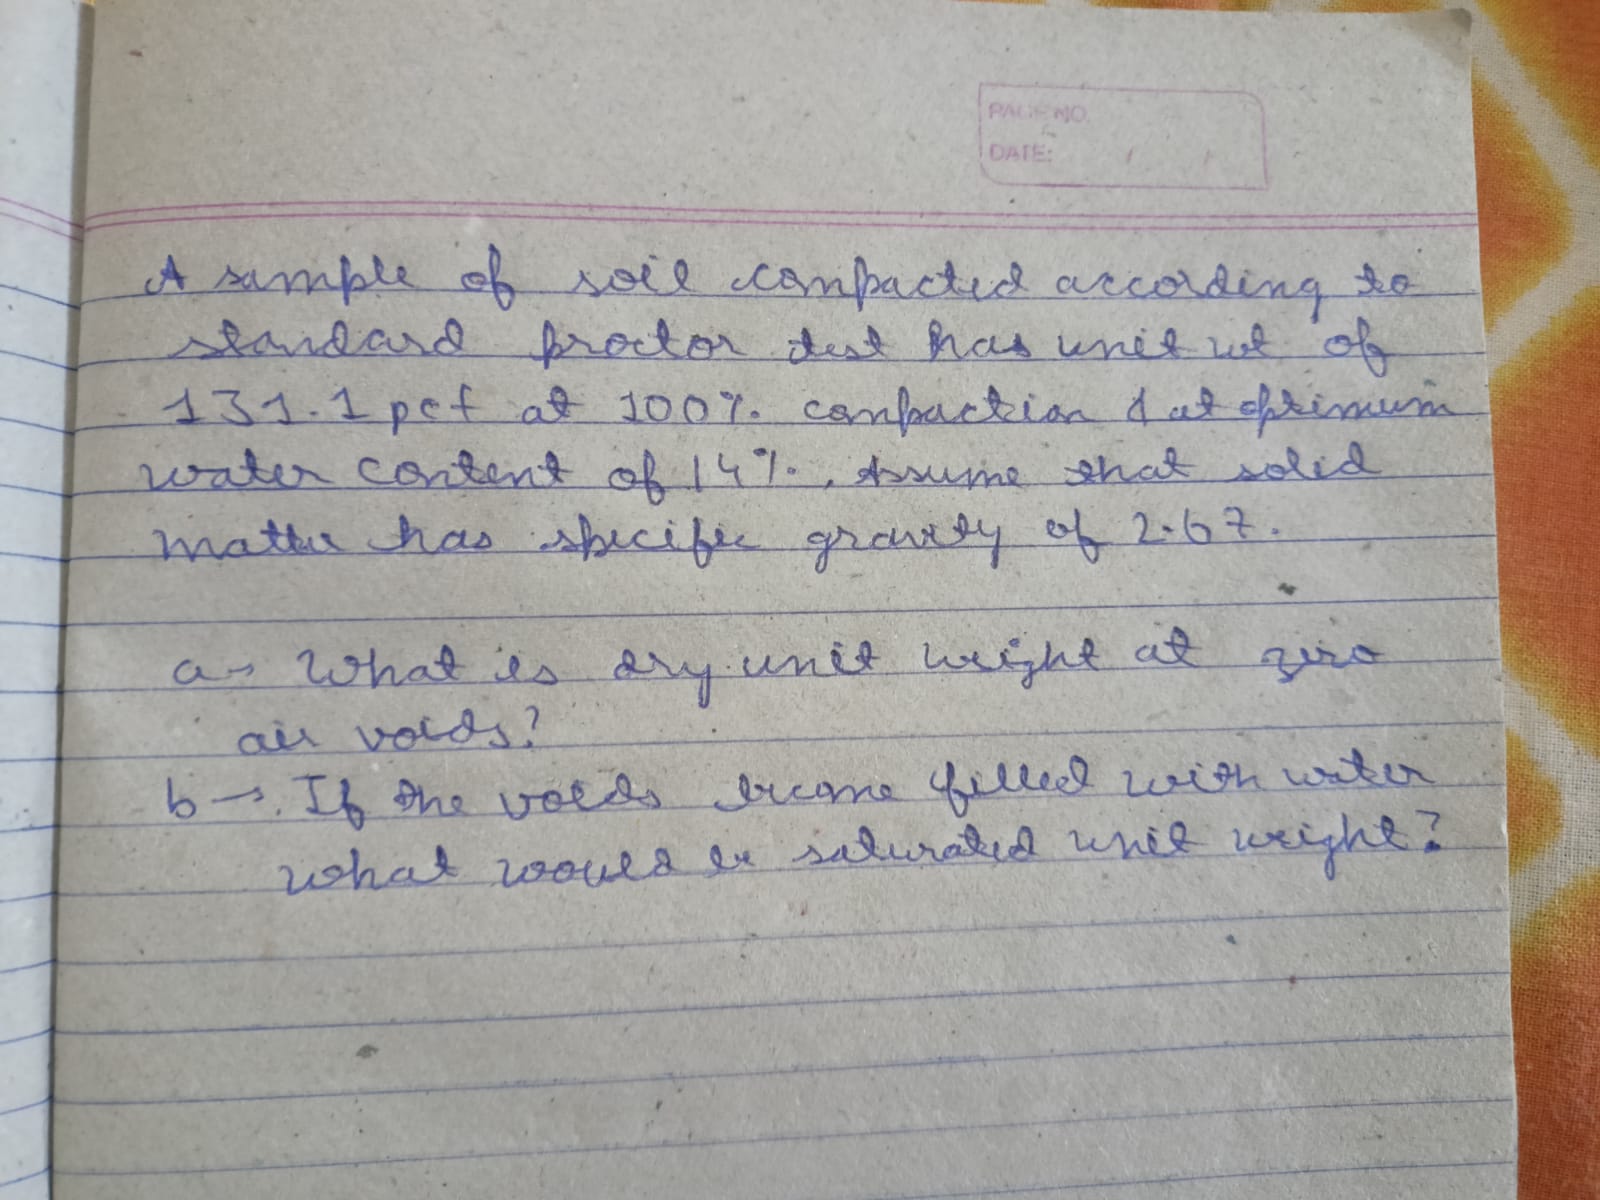 PAGE NO.
DATE: / /
A sample of soil compacted according to
standard proctor test has unit wt of
131.1 pcf at 100% compaction & at optimum
water content of 14%. Assume that solid
matter has specific gravity of 2.67.
a→ What is dry unit weight at zero
air voids?
b→ If the voids become filled with water
what would be saturated unit weight?